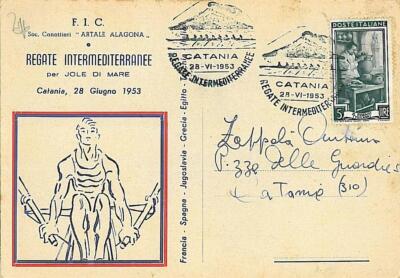 F. I. C.
Soc. Canottieri "ARTALE ALAGONA"
REGATE INTERMEDITERRANEE
per JOLE DI MARE
Catania, 28 Giugno 1953
Francia - Spagna - Jugoslavia - Grecia - Egitto -
CATANIA
28-VI-1953
REGATE INTERMEDITERRANEE
CATANIA
28-VI-1953
REGATE INTERMEDITERRANEE
POSTE ITALIANE
5 LIRE
Zappalà
P.zza delle Guardie
Catania (310)